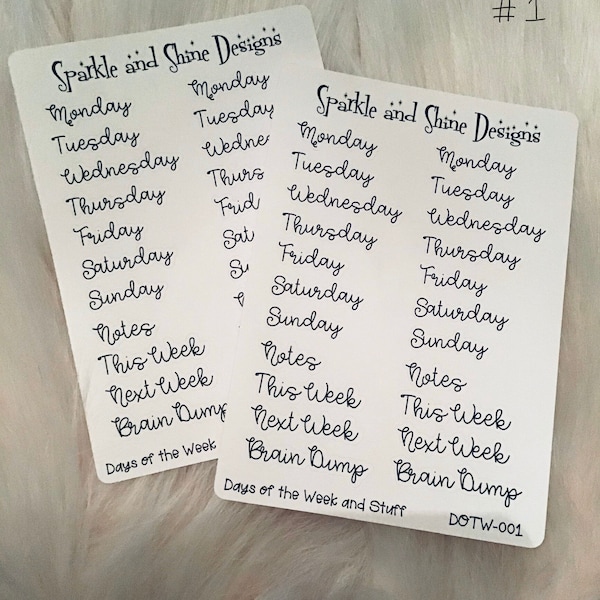 #1
Sparkle and Shine Designs
Monday Monday
Tuesday Tuesday
Wednesday
Thursday
Friday
Saturday
Sunday
Notes
This Week
Next Week
Brain Dump
Days of the Week
Sparkle and Shine Designs
Monday Monday
Tuesday Tuesday
Wednesday Wednesday
Thursday Thursday
Friday Friday
Saturday Saturday
Sunday Sunday
Notes Notes
This Week This Week
Next Week Next Week
Brain Dump Brain Dump
Days of the Week and Stuff DOTW-001